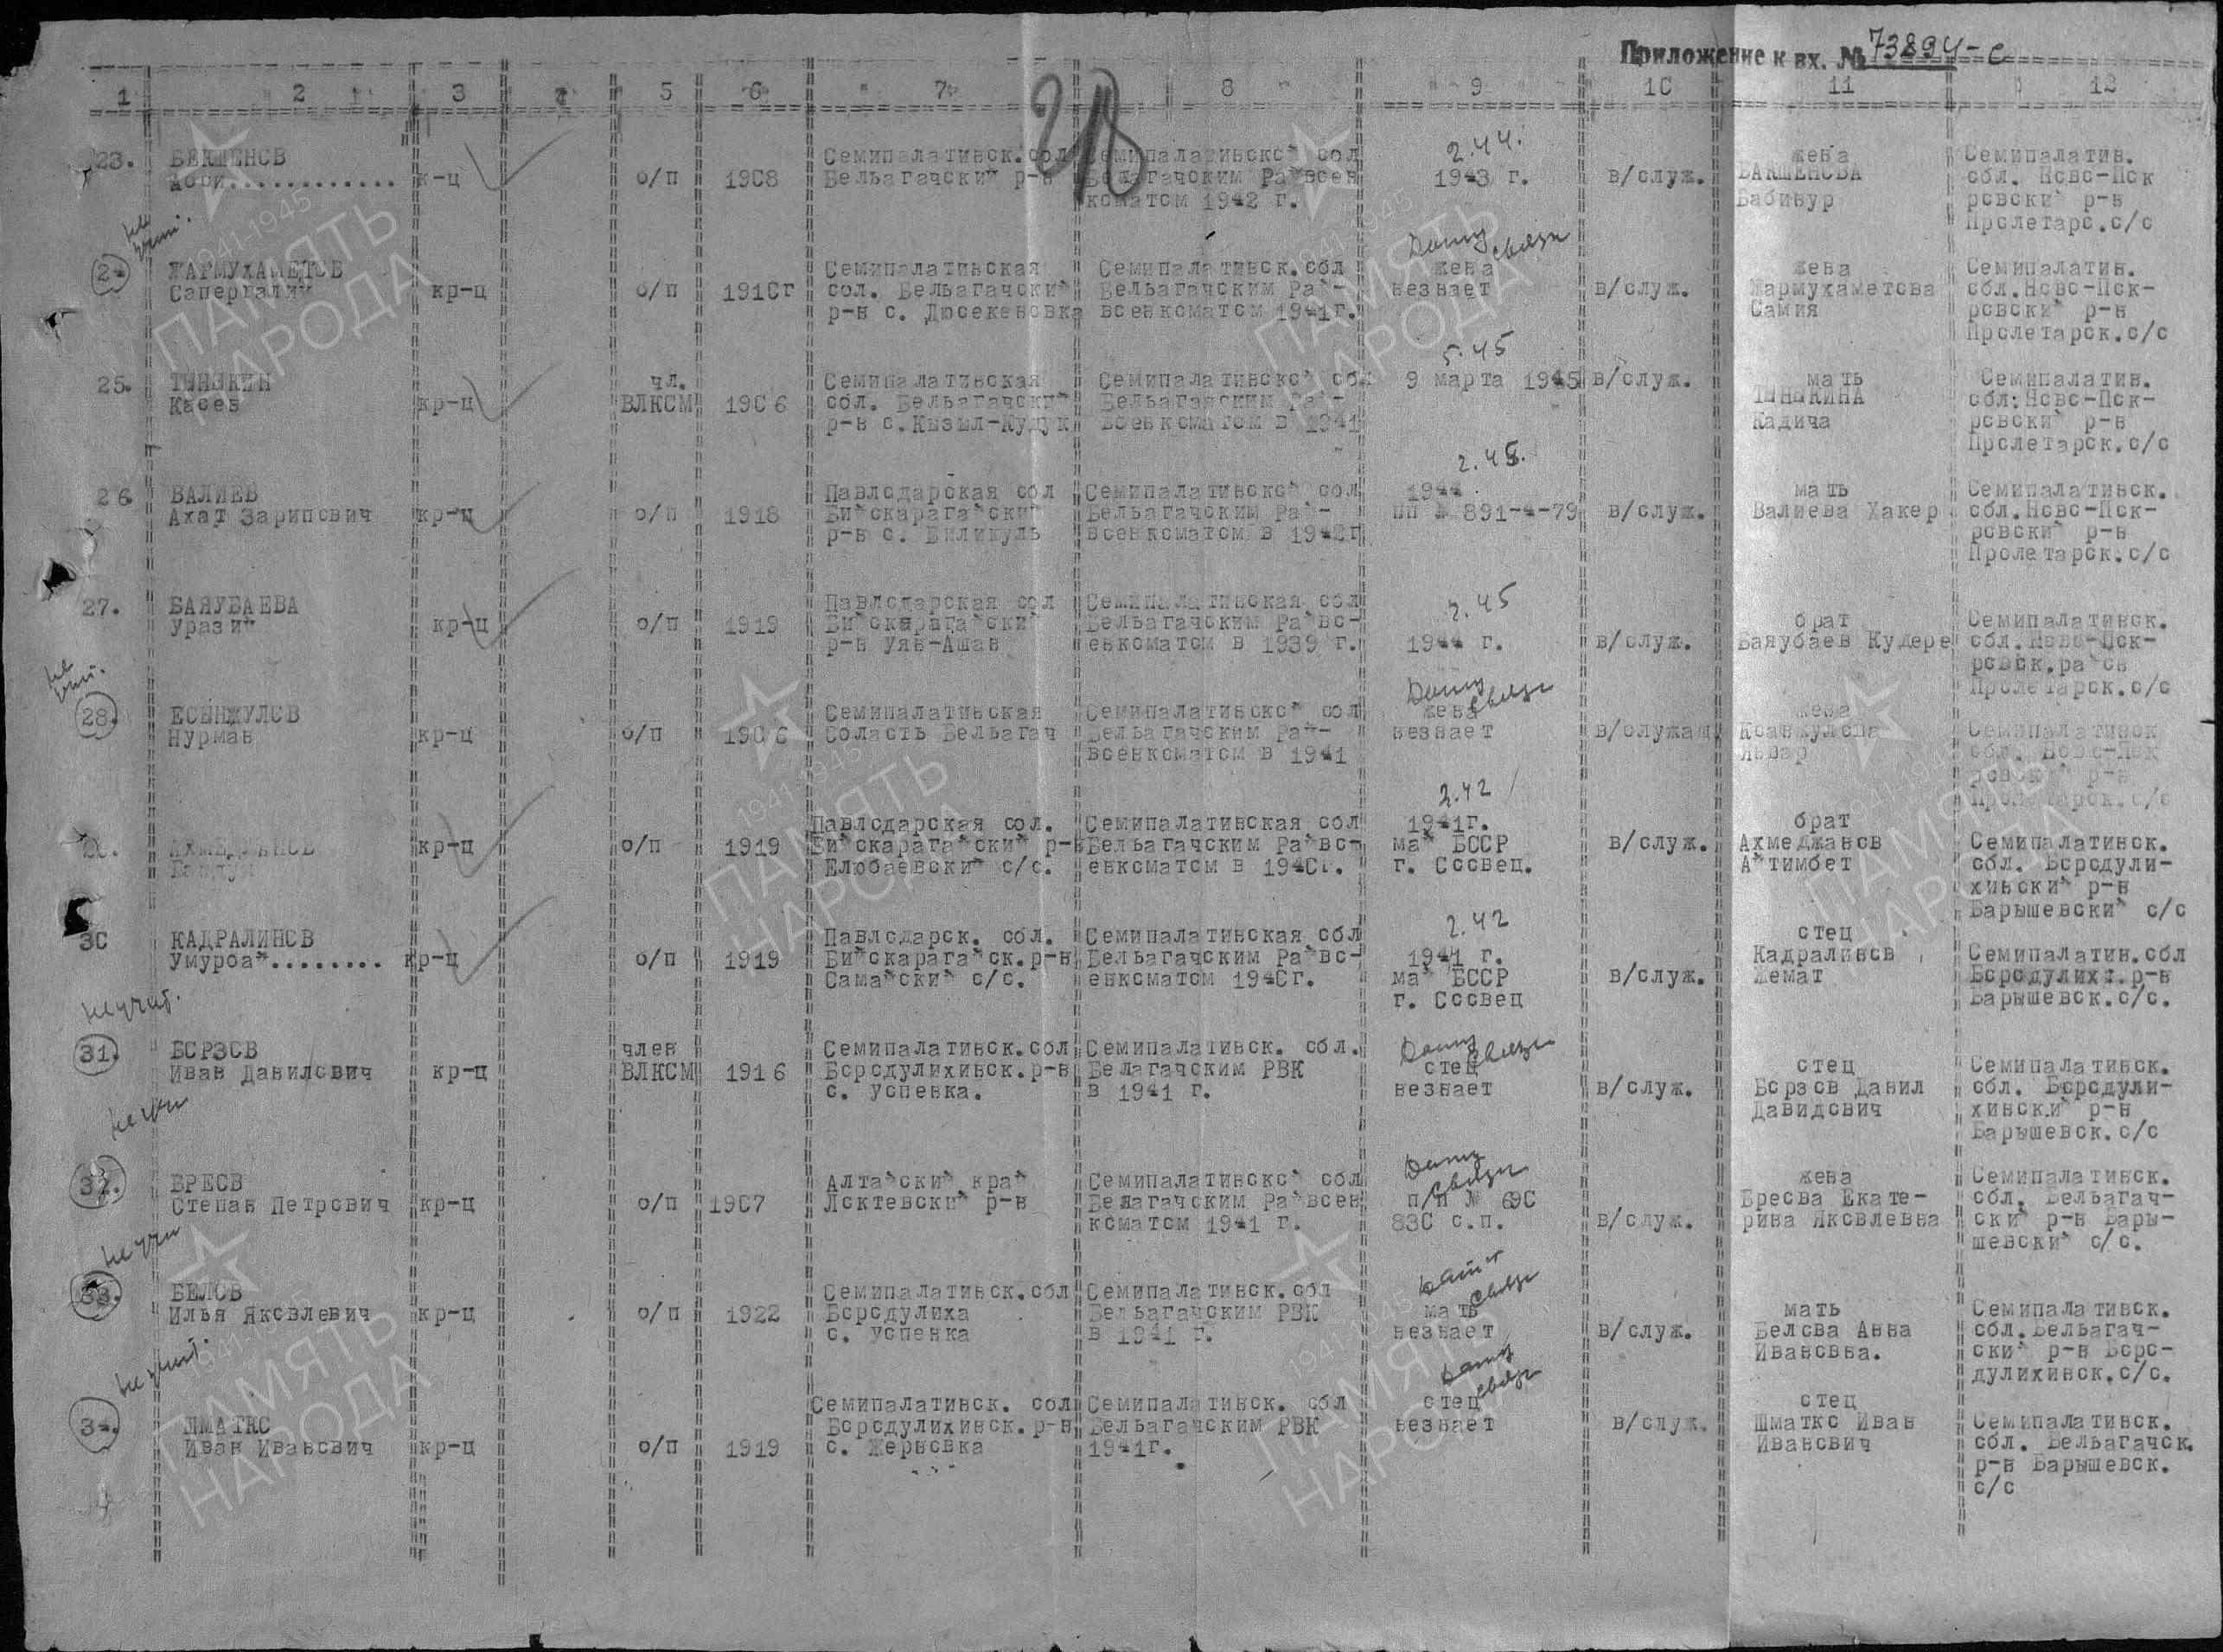 Приложение к вх. № 73894-с
1 2 3 4 5 6 7 8 9 10 11 12
28
23. БЕКШЕНОВ к-ц о/п 1908
Семипалатинск.обл
Бельагачский р-н
Семипалатинской обл
Белагачским Райвоен
коматом 1942 г.
2.44.
1943 г.
в/служ.
жена
БАКШЕНОВА
Бабинур
Семипалатин.
обл. Ново-Пок
ровский р-н
Пролетарс.с/с
24 ЖАРМУХАМЕТОВ
Сапергалий кр-ц о/п 1910г
Семипалатинская
обл. Бельагачский
р-н с. Дюсекеновка
Семипалатинск.обл
Бельагачским Рай-
военкоматом 1941г.
Дату связи
жена
незнает
в/служ.
жена
Жармухаметова
Самия
Семипалатин.
обл.Ново-Пок-
ровский р-н
Пролетарск.с/с
25. ТЫНЫКИН
Касен кр-ц
чл.
ВЛКСМ 1906
Семипалатинская
обл. Бельагачский
р-н с.Кызыл-Кудук
Семипалатинской обл
Бельагачским Рай-
военкоматом в 1941
5.45
9 марта 1945
в/служ.
мать
ТЫНЫКИНА
Кадича
Семипалатин.
обл.Ново-Пок-
ровский р-н
Пролетарск.с/с
26 ВАЛИЕВ
Ахат Зарипович кр-ц о/п 1918
Павлодарская обл
Бийскарагайский
р-н с. Биликуль
Семипалатинской обл
Бельагачским Рай-
военкоматом в 1942г
2.45.
1944
пп № 891-4-79
в/служ.
мать
Валиева Хакер
Семипалатинск.
обл.Ново-Пок-
ровский р-н
Пролетарск.с/с
27. БАЯУБАЕВА
Уразий кр-ц о/п 1919
Павлодарская обл
Бийскарагайский
р-н Уян-Ашан
Семипалатинская обл
Бельагачским Райво-
енкоматом в 1939 г.
2.45
1944 г.
в/служ.
брат
Баяубаев Кудере
Семипалатинск.
обл.Ново-Пок-
ровск.район
Пролетарск.с/с
28. ЕСЫНЖУЛОВ
Нурман кр-ц о/п 1906
Семипалатинская
область Бельагач
Семипалатинской обл
Бельагачским Рай-
военкоматом в 1941
Дату связи
жена
незнает
в/служащ
жена
Январ
Семипалатинск
обл. Ново-Пок
ровский р-н
Пролетарск.с/с
кр-ц о/п 1919
Павлодарская обл.
Бийскарагайский р-н
Елюбаевский с/с.
Семипалатинская обл
Бельагачским Райво-
енкоматом в 1940г.
2.42
1941г.
май БССР
г. Сосвец.
в/служ.
брат
Ахмеджанов
Айтимбет
Семипалатинск.
обл. Бородули-
хинский р-н
Барышевский с/с
30 КАДРАЛИНОВ
Умурбай........ кр-ц о/п 1919
Павлодарск. обл.
Бийскарагайск.р-н
Самайский с/с.
Семипалатинская обл
Бельагачским Райво-
енкоматом 1940г.
2.42
1941 г.
май БССР
г. Сосвец
в/служ.
отец
Кадралинов
Жемат
Семипалатин.обл
Бородулихи.р-н
Барышевск.с/с.
не учит.
31. БОРЗОВ
Иван Данилович кр-ц
член
ВЛКСМ 1916
Семипалатинск.обл
Бородулихинск.р-н
с. Успенка.
Семипалатинск. обл.
Белагачским РВК
в 1941 г.
Дату связи
отец
незнает
в/служ.
отец
Борзов Данил
Давидович
Семипалатинск.
обл. Бородули-
хинский р-н
Барышевск.с/с
не учи
32. БРЕОВ
Степан Петрович кр-ц о/п 1907
Алтайский край
Локтевский р-н
Семипалатинской обл
Белагачским Райвоен
коматом 1941 г.
Дату связи
п/п № 690
830 с.п.
в/служ.
жена
Бреова Екате-
рина Яковлевна
Семипалатинск.
обл. Бельагач-
ский р-н Бары-
шевский с/с.
не учи
33. БЕЛОВ
Илья Яковлевич кр-ц о/п 1922
Семипалатинск.обл
Бородулиха
с. Успенка
Семипалатинск.обл
Бельагачским РВК
в 1941 г.
Дата связи
мать
незнает
в/служ.
мать
Белова Анна
Ивановна.
Семипалатинск.
обл.Бельагач-
ский р-н Боро-
дулихинск.с/с.
не учит.
34. ШМАТКО
Иван Иванович кр-ц о/п 1919
Семипалатинск. обл
Бородулихинск.р-н
с. Жерновка
Семипалатинск. обл
Бельагачским РВК
1941г.
Дату связи
отец
незнает
в/служ.
отец
Шматко Иван
Иванович
Семипалатинск.
обл. Бельагачск.
р-н Барышевск.
с/с
1941-1945
ПАМЯТЬ
НАРОДА